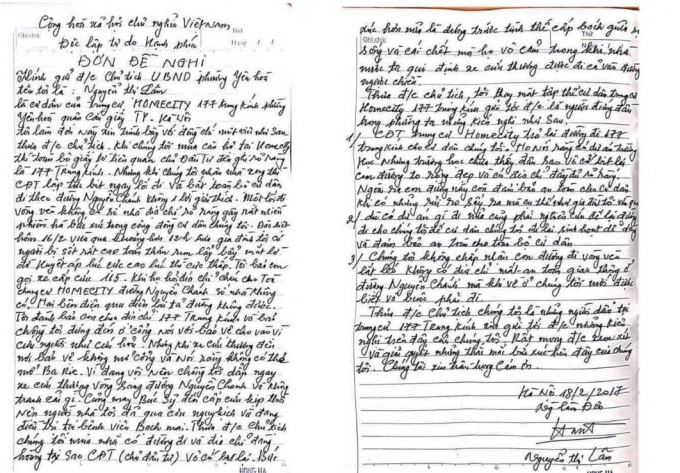 Cộng hoà xã hội chủ nghĩa Việt NAM
Độc lập Tự do Hạnh phúc
ĐƠN ĐỀ NGHỊ
Kính gửi đ/c Chủ tịch UBND phường Yên hoà
tên tôi là: Nguyễn Thị Lân
là cư dân của chung cư HOMECITY 177 Trung Kính phường
Yên hoà quận Cầu giấy TP. Hà Nội
Tôi làm đơn này xin trình bày với đồng chí một việc như sau
Thưa đ/c Chủ tịch. Khi chúng tôi mua căn hộ tại Homecity
thì toàn bộ giấy tờ liên quan chủ Đầu Tư đều ghi rõ ràng
là 177 Trung Kính. Nhưng khi chúng tôi nhận nhà xong thì
CĐT lập tức bịt ngay lối đi và bắt toàn bộ cư dân
đi theo đường Nguyễn Chánh không 1 lời giải thích. Một lối đi
vòng vèo không có số nhà địa chỉ rõ ràng gây rất nhiều
phiền hà bức xúc trong cộng đồng cư dân chúng tôi. Đặc biệt
hôm 16/2 vừa qua khoảng hơn 12h đêm gia đình tôi có
người bị sốt rét cao toàn thân run lẩy bẩy mặt tái
đó huyết áp lại cực cao lúc thì cực thấp. Tôi bảo con
gọi xe cấp cứu 115. Khi họ hỏi địa chỉ cháu cho Toà
chung cư HOMECITY đường Nguyễn Chánh số nhà không
có, Hai bên điện qua điện lại ta đứng không được.
Tôi đành bảo con cho địa chỉ 177 Trung Kính và bảo
chồng tôi đứng đón ở cổng nói với bảo vệ cho vào vì
cứu người như cứu hoả. Nhưng khi xe cứu thương đến
nơi bảo vệ không mở cổng và nói rằng không có thể
mở Ba Rie. Vì đang vội nên chồng tôi dẫn ngay
xe cứu thương vòng sang đường Nguyễn Chánh và không
tranh cãi gì. Cũng may Bác Sỹ đến cấp cứu kịp thời
nên người nhà tôi đã qua cơn nguy kịch và đang
điều trị tại bệnh viện Bạch mai. Thưa đ/c Chủ tịch
chúng tôi mua nhà có đường đi và địa chỉ đàng
hoàng tại sao CĐT (chủ đầu tư) vô cớ bịt lại. Bức
HỒNG HÀ
Ghi chú
Thứ
Ngày
xúc hơn nữa là đứng trước tình thế cấp bách giữa
sống và cái chết mà họ vô cảm trong khi nhà
nước ta qui định xe cứu thương được đi cả vào đường
ngược chiều.
Thưa đ/c Chủ tịch, tôi thay mặt tập thể cư dân chung cư
Homecity 177 Trung Kính gửi tới đ/c là người đứng đầu
trong phường ta những kiến nghị như sau
1/ CĐT chung cư Homecity trả lại đường đi 177
Trung Kính cho cư dân chúng tôi. Họ nói rằng có dự án trường
học nhưng trường học chưa thấy đâu sao vô cớ bịt lại
con đường to rộng đẹp và có địa chỉ đầy đủ rõ ràng.
Ngoài ra con đường này còn đảm bảo an toàn cho cư dân
khi có những rủi ro sảy ra mà cụ thể như gia đình tôi vừa qua
2/ dù có dự án gì đi nữa cũng phải nghiên cứu để lại đường
đi cho chúng tôi để cư dân chúng tôi đi lại sinh hoạt dễ dàng
và đảm bảo an toàn cho toàn bộ cư dân
3/ Chúng tôi không chấp nhận con đường đi vòng vèo
bất tiện không có địa chỉ mất an toàn giao thông ở
đường Nguyễn Chánh mà khi về ở chúng tôi mới được
biết và buộc phải đi.
Thưa đ/c Chủ tịch chúng tôi là những người dân tại
chung cư 177 Trung Kính xin gửi tới đ/c những kiến
nghị trên đây của chúng tôi. Rất mong đ/c xem xét
và giải quyết những thắc mắc bức xúc trên đây của chúng
tôi. Chúng tôi xin trân trọng cảm ơn.
Hà Nội 18/2/2017
Người làm Đơn
Nguyễn Thị Lân
HỒNG HÀ